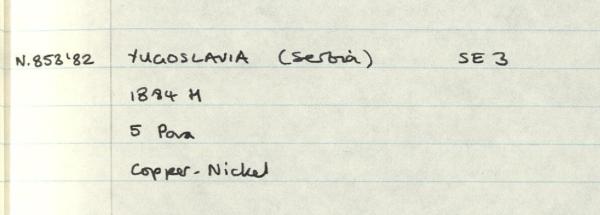 N.853'82 YUGOSLAVIA (Serbia) SE 3
1884 H
5 Para
Copper-Nickel